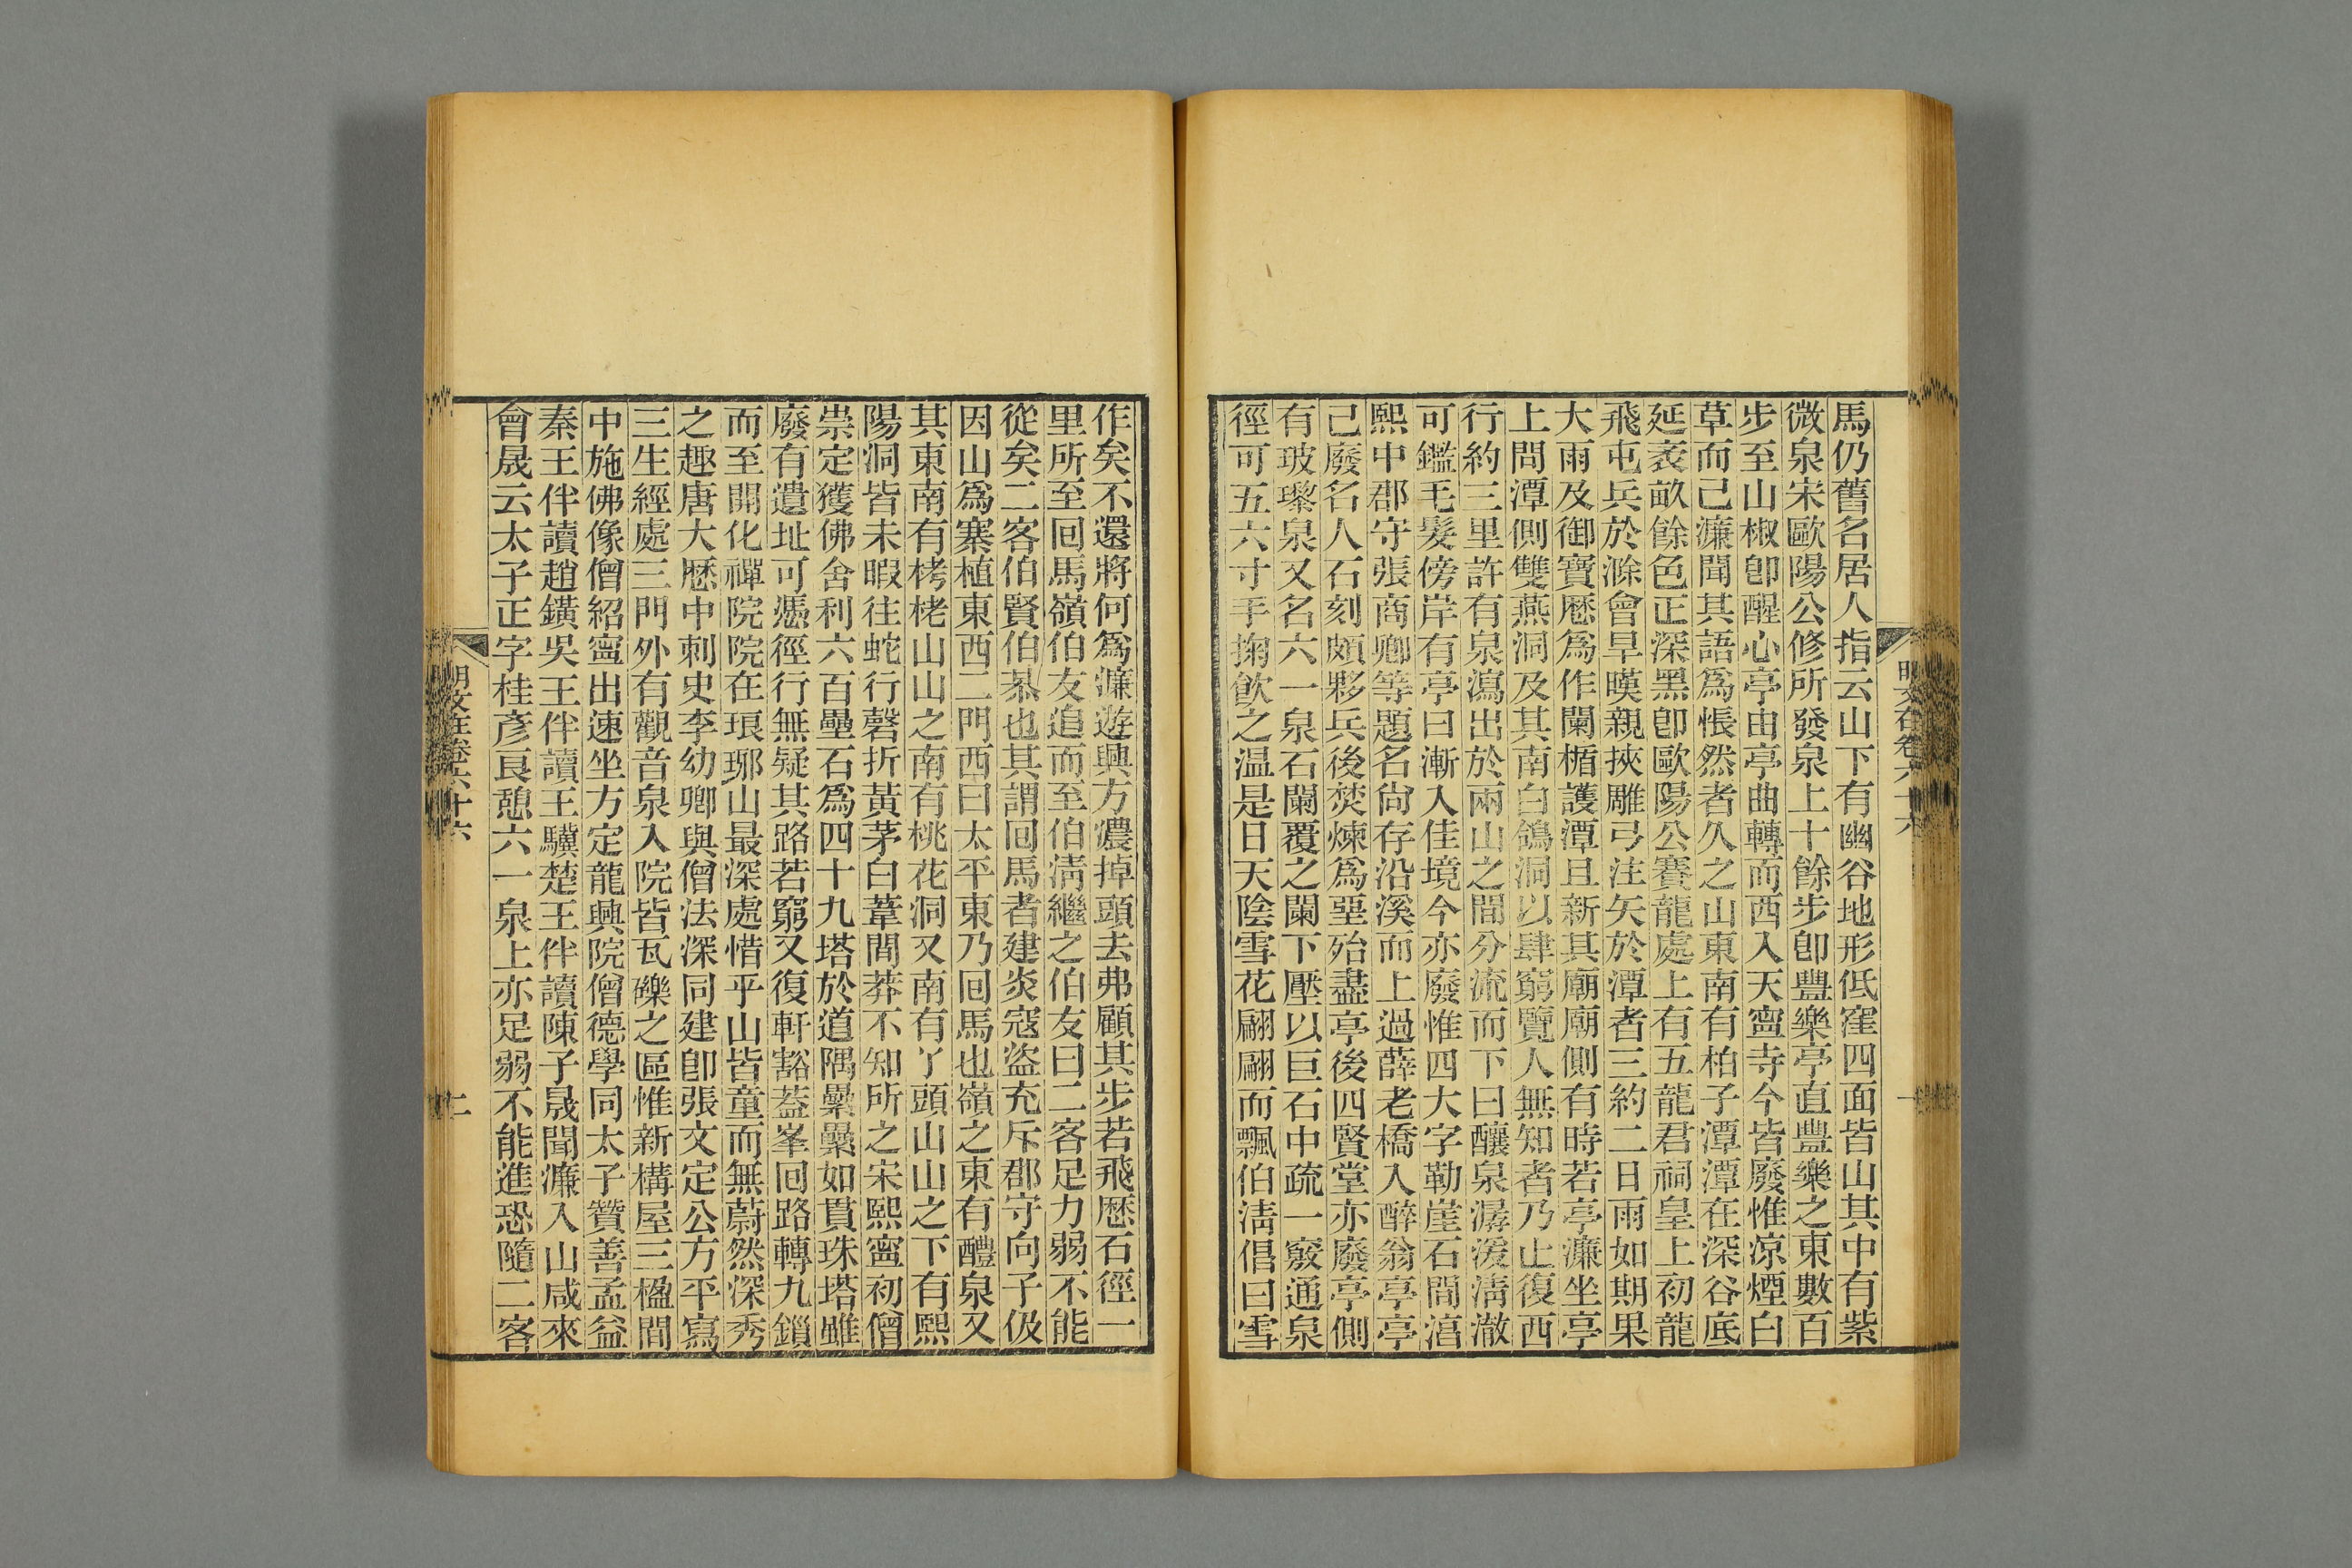 馬仍舊名居人指云山下有幽谷地形低窪四面皆山其中有紫
微泉宋歐陽公修所發泉上十餘步卽豐樂亭直豐樂之東數百
步至山椒卽醒心亭由亭曲轉而西入天寍寺今皆廢惟涼煙白
草而已濂聞其語爲悵然者久之山東南有柏子潭潭在深谷底
延袤畝餘色正深黑卽歐陽公賽龍處上有五龍君祠皇上初龍
飛屯兵於滁會旱暵親挾雕弓注矢於潭者三約二日雨如期果
大雨及御寶歷爲作闌楯護潭且新其廟廟側有時若亭濂坐亭
上問潭側雙燕洞及其南白鴿洞以肆窮覽人無知者乃止復西
行約三里許有泉瀉出於兩山之間分流而下曰釀泉潺湲清澈
可鑑毛髮傍岸有亭曰漸入佳境今亦廢惟四大字勒崖石間湻
熙中郡守張商卿等題名尙存沿溪而上過薛老橋入醉翁亭亭
己廢名人石刻頗夥兵後焚煉爲堊殆盡亭後四賢堂亦廢亭側
有玻瓈泉又名六一泉石闌覆之闌下壓以巨石中疏一竅通泉
徑可五六寸手掬飮之温是日天陰雪花翩翩而飄伯淸倡曰雪
明文在卷六十六
一
作矣不還將何爲濂遊興方濃掉頭去弗顧其步若飛歷石徑一
里所至回馬嶺伯友追而至伯淸繼之伯友曰二客足力弱不能
從矣二客伯賢伯㳟也其謂回馬者建炎寇盜充斥郡守向子伋
因山爲寨植東西二門西曰太平東乃回馬也嶺之東有醴泉又
其東南有栲栳山山之南有桃花洞又南有丫頭山山之下有熙
陽洞皆未暇往蛇行磬折黃茅白葦間莽不知所之宋熙寍初僧
崇定獲佛舍利六百壘石爲四十九塔於道隅纍纍如貫珠塔雖
廢有遺址可憑徑行無疑其路若窮又復軒豁葢峯回路轉九鎖
而至開化禪院院在琅琊山最深處惜乎山皆童而無蔚然深秀
之趣唐大歷中刺史李幼卿與僧法深同建卽張文定公方平寫
三生經處三門外有觀音泉入院皆瓦礫之區惟新構屋三楹間
中施佛像僧紹寍出速坐方定龍興院僧德學同太子贊善孟益
秦王伴讀趙鐄吳王伴讀王驥楚王伴讀陳子晟聞濂入山咸來
會晟云太子正字桂彥良憩六一泉上亦足弱不能進恐隨二客
明文在卷六十六
二